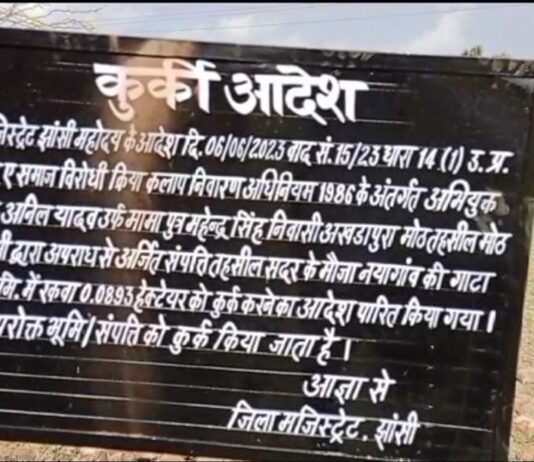 कुर्की आदेश
जिस्ट्रेट झांसी महोदय के आदेश दि. 06/06/2023 वाद सं. 15/23 धारा 14 (1) उ.प्र.
ए समाज विरोधी क्रिया कलाप निवारण अधिनियम 1986 के अंतर्गत अभियुक
अनिल यादव उर्फ मामा पुत्र महेन्द्र सिंह निवासी अखडापुरा मोठ तहसील मोठ
द्वारा अपराध से अर्जित संपत्ति तहसील सदर के मौजा नयागांव की गाटा
मि. में रकवा 0.0893 हेक्टेयर को कुर्क करने का आदेश पारित किया गया।
रोक्त भूमि/संपत्ति को कुर्क किया जाता है।
आज्ञा से
जिला मजिस्ट्रेट, झांसी